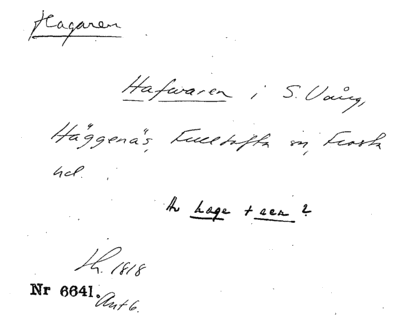 Hagaren
Hafwaren i S. Uång,
Häggenäs, Fulltofta sn, Frosta
hd.
Av hage + aen ?
Lh. 1818
Nr 6641. Ant 6.